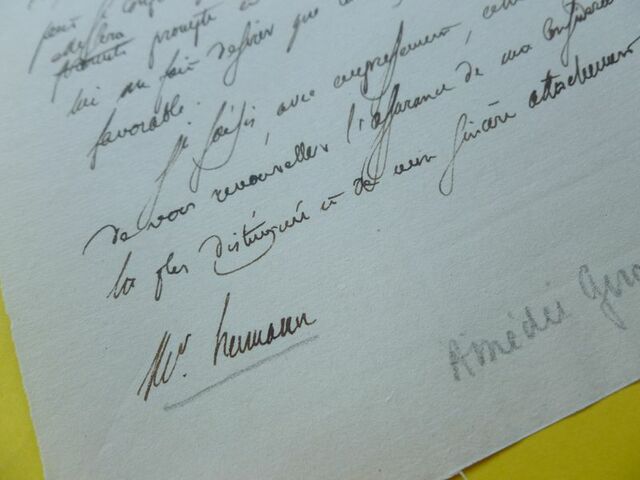 prompte
lui me fait desirer que
favorable.
Je saisis, avec empressement, cette
de vous renouveller l'assurance de ma
la plus distinguée et de mon sincère attachement
Mr. hermann
Amédée